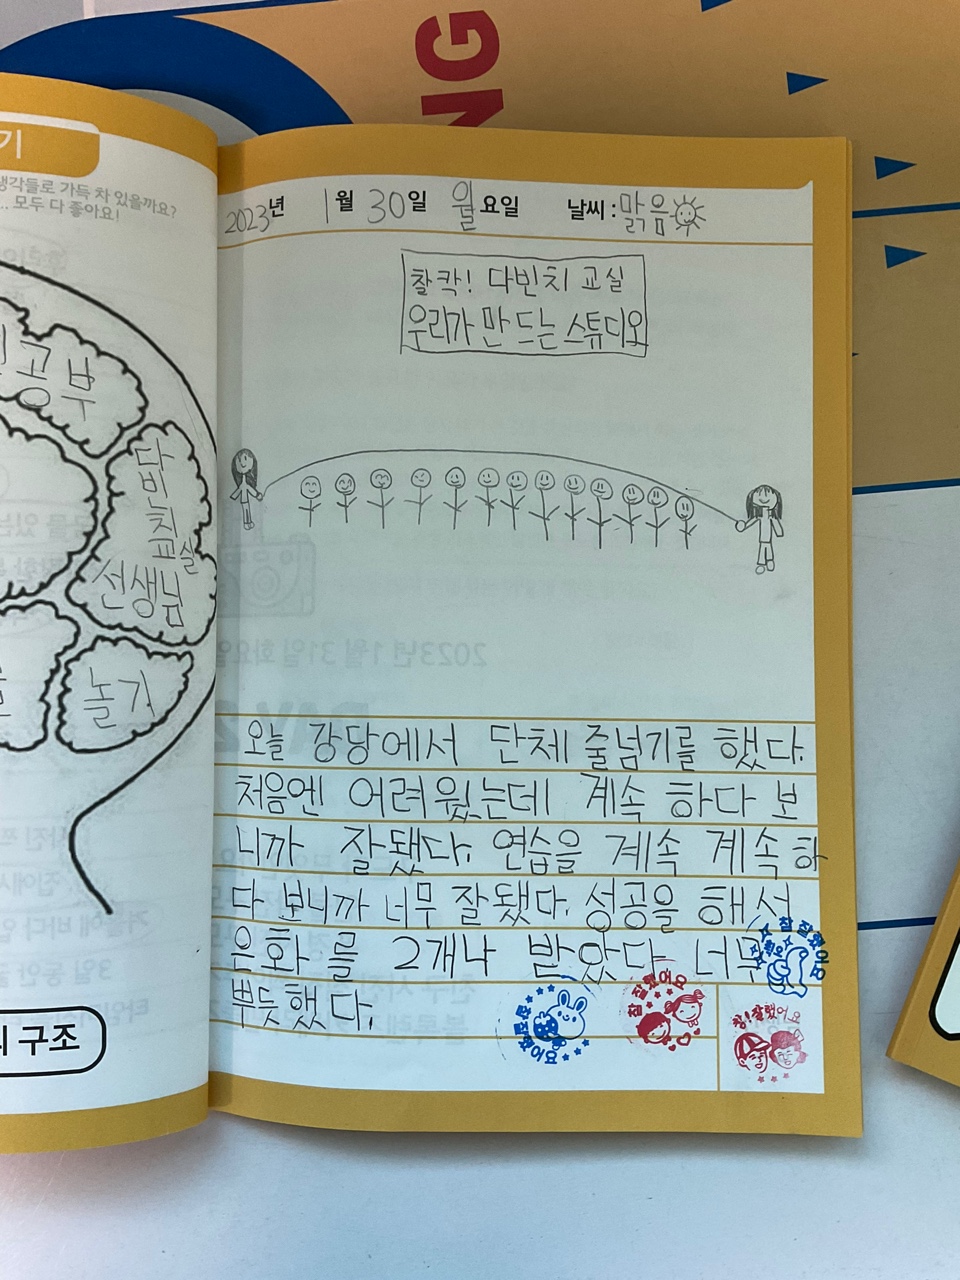 NG
기
생각들로 가득 차 있을까요?
... 모두 다 좋아요!
공부
다빈치교실
선생님
놀기
의 구조
2023년 1월 30일 월요일 날씨 : 맑음
찰칵! 다빈치 교실
우리가 만드는 스튜디오
오늘 강당에서 단체 줄넘기를 했다.
처음엔 어려웠는데 계속 하다 보
니까 잘됐다. 연습을 계속 계속 하
다 보니까 너무 잘됐다. 성공을 해서
은화를 2개나 받았다 너무
뿌듯했다.
참 잘했어요
참 잘했어요
참! 잘했어요